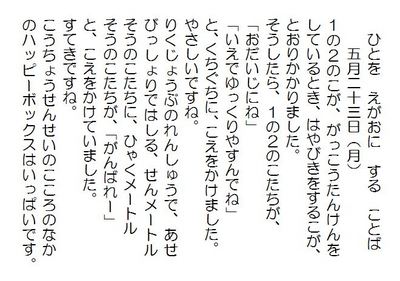 ひとを　えがおに　する　ことば
五月二十三日（月）
１の２のこが、がっこうたんけんを
しているとき、はやびきをするこが、
とおりかかりました。
そうしたら、１の２のこたちが、
「おだいじにね」
「いえでゆっくりやすんでね」
と、くちぐちに、こえをかけました。
やさしいですね。
りくじょうぶのれんしゅうで、あせ
びっしょりではしる、せんメートル
そうのこたちに、ひゃくメートル
そうのこたちが、「がんばれー」
と、こえをかけていました。
すてきですね。
こうちょうせんせいのこころのなか
のハッピーボックスはいっぱいです。